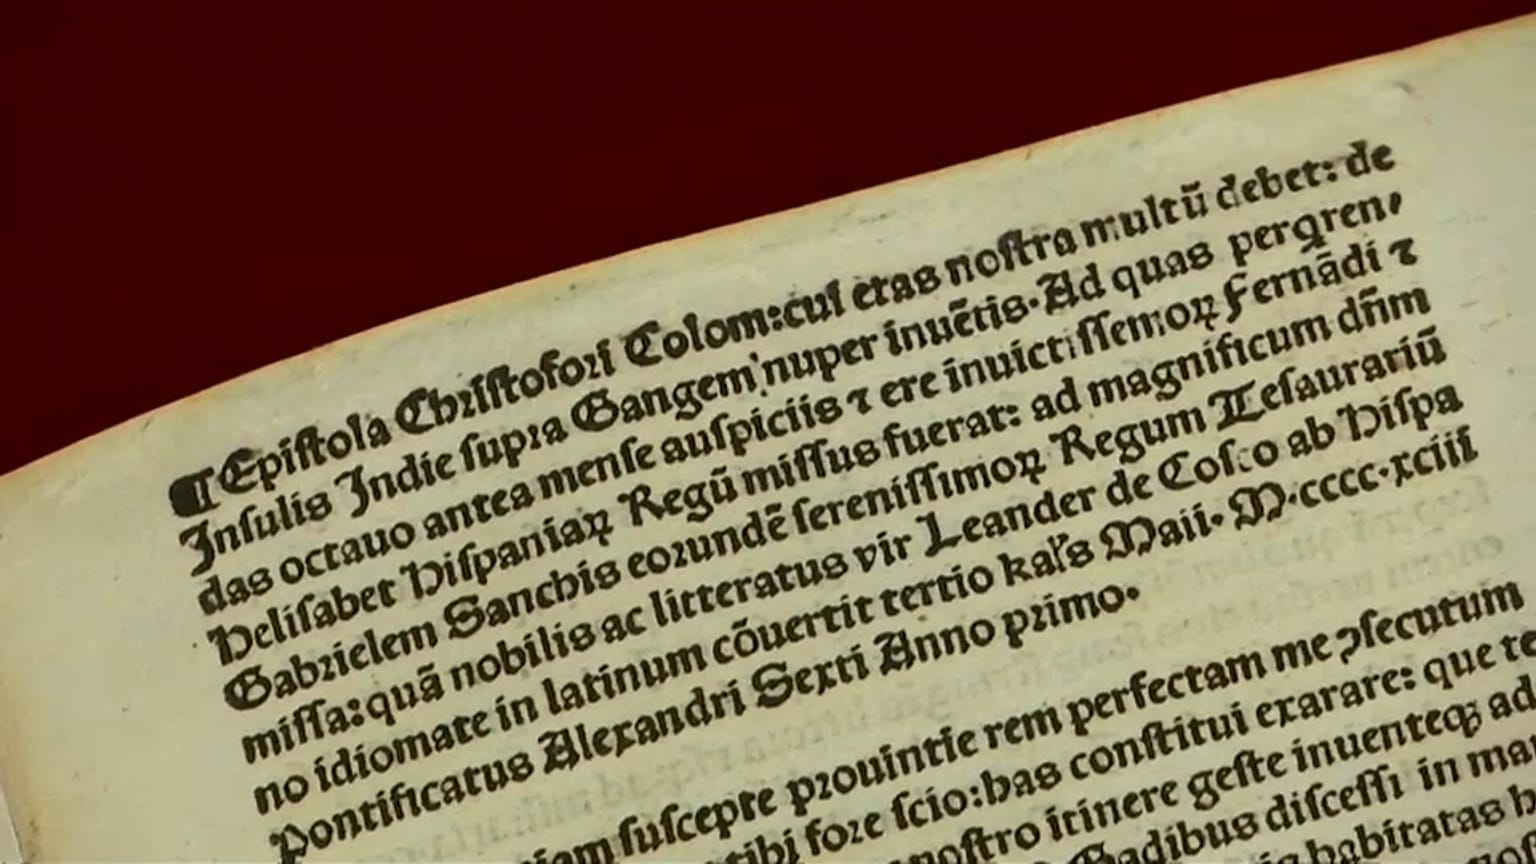 ¶Epiſtola Chriſtofori Colom: cui etas noſtra multū debet: de
Inſulis Indie ſupra Gangem nuper inuētis. Ad quas perqren⸗
das octauo antea menſe auſpiciis ⁊ ere inuictiſſemoꝝ Fernādi ⁊
Heliſabet Hiſpaniaꝝ Regū miſſus fuerat: ad magnificum dñm
Gabrielem Sanchis eorundē ſereniſſimoꝝ Regum Teſaurariū
miſſa: quā nobilis ac litteratus vir Leander de Coſco ab Hiſpa
no idiomate in latinum cōuertit tertio kal's Maii. M.cccc.xciii
Pontificatus Alexandri Sexti Anno primo.
ſuſcepte prouintie rem perfectam me ꝯſecutum
fore ſcio: has conſtitui exarare: que te
itinere geſte inuenteqꝫ ad
Gadibus diſceſſi in ma
habitatas h